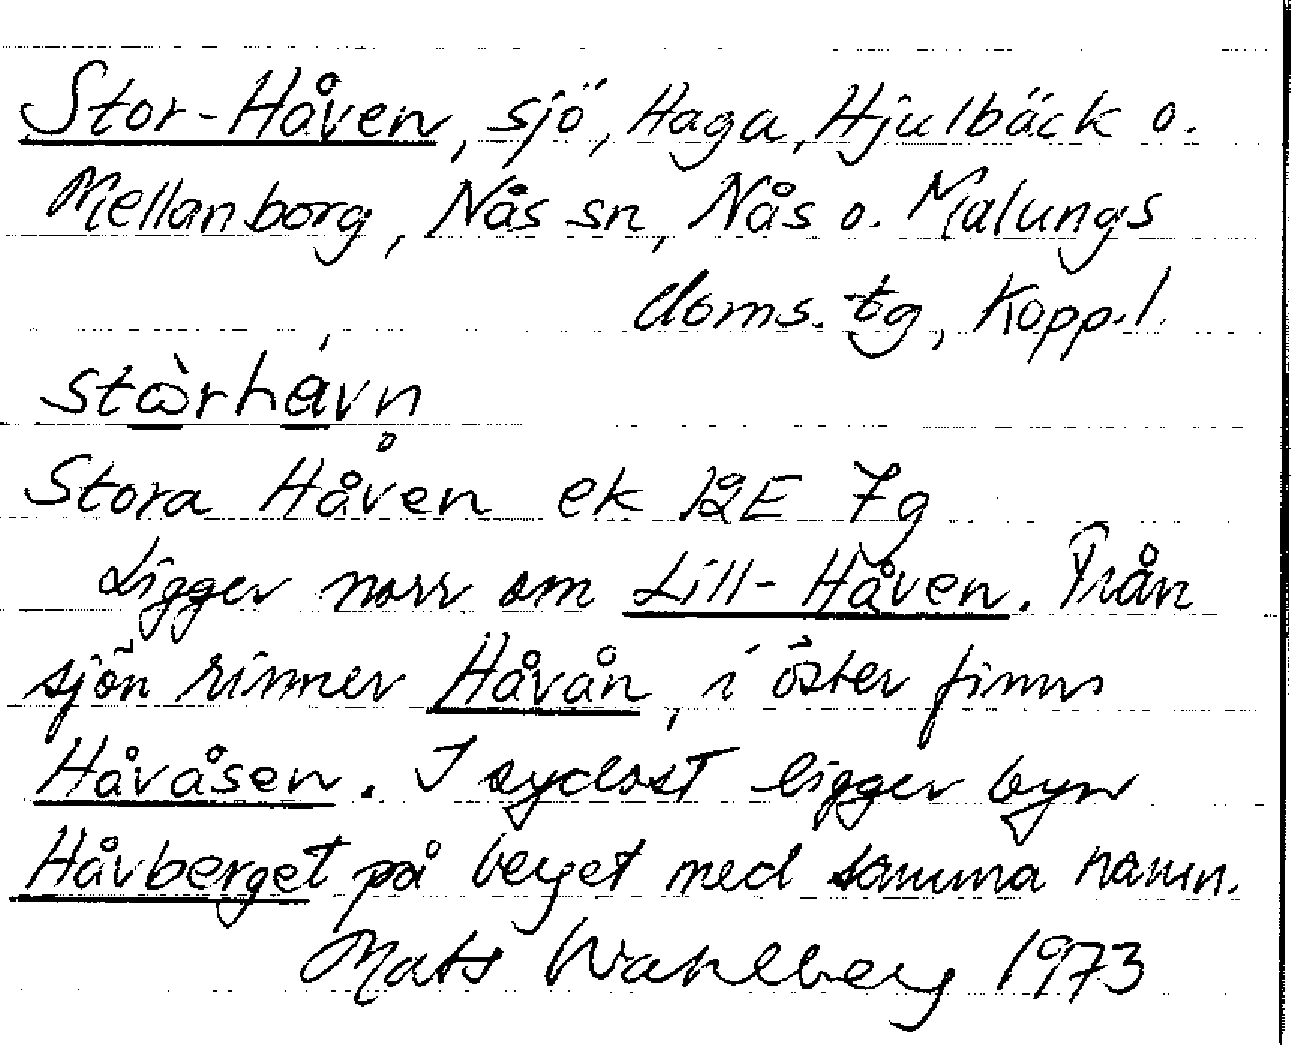 Stor-Håven, sjö, Haga, Hjulbäck o.
Mellanborg, Nås sn, Nås o. Malungs
doms. tg, Kopp.l.
Stora Håven ek 12E 7g
Ligger norr om Lill-Håven. Från
sjön rinner Håvån, i öster finns
Håvåsen. I sydost ligger byn
Håvberget på berget med samma namn.
Mats Wahlberg 1973